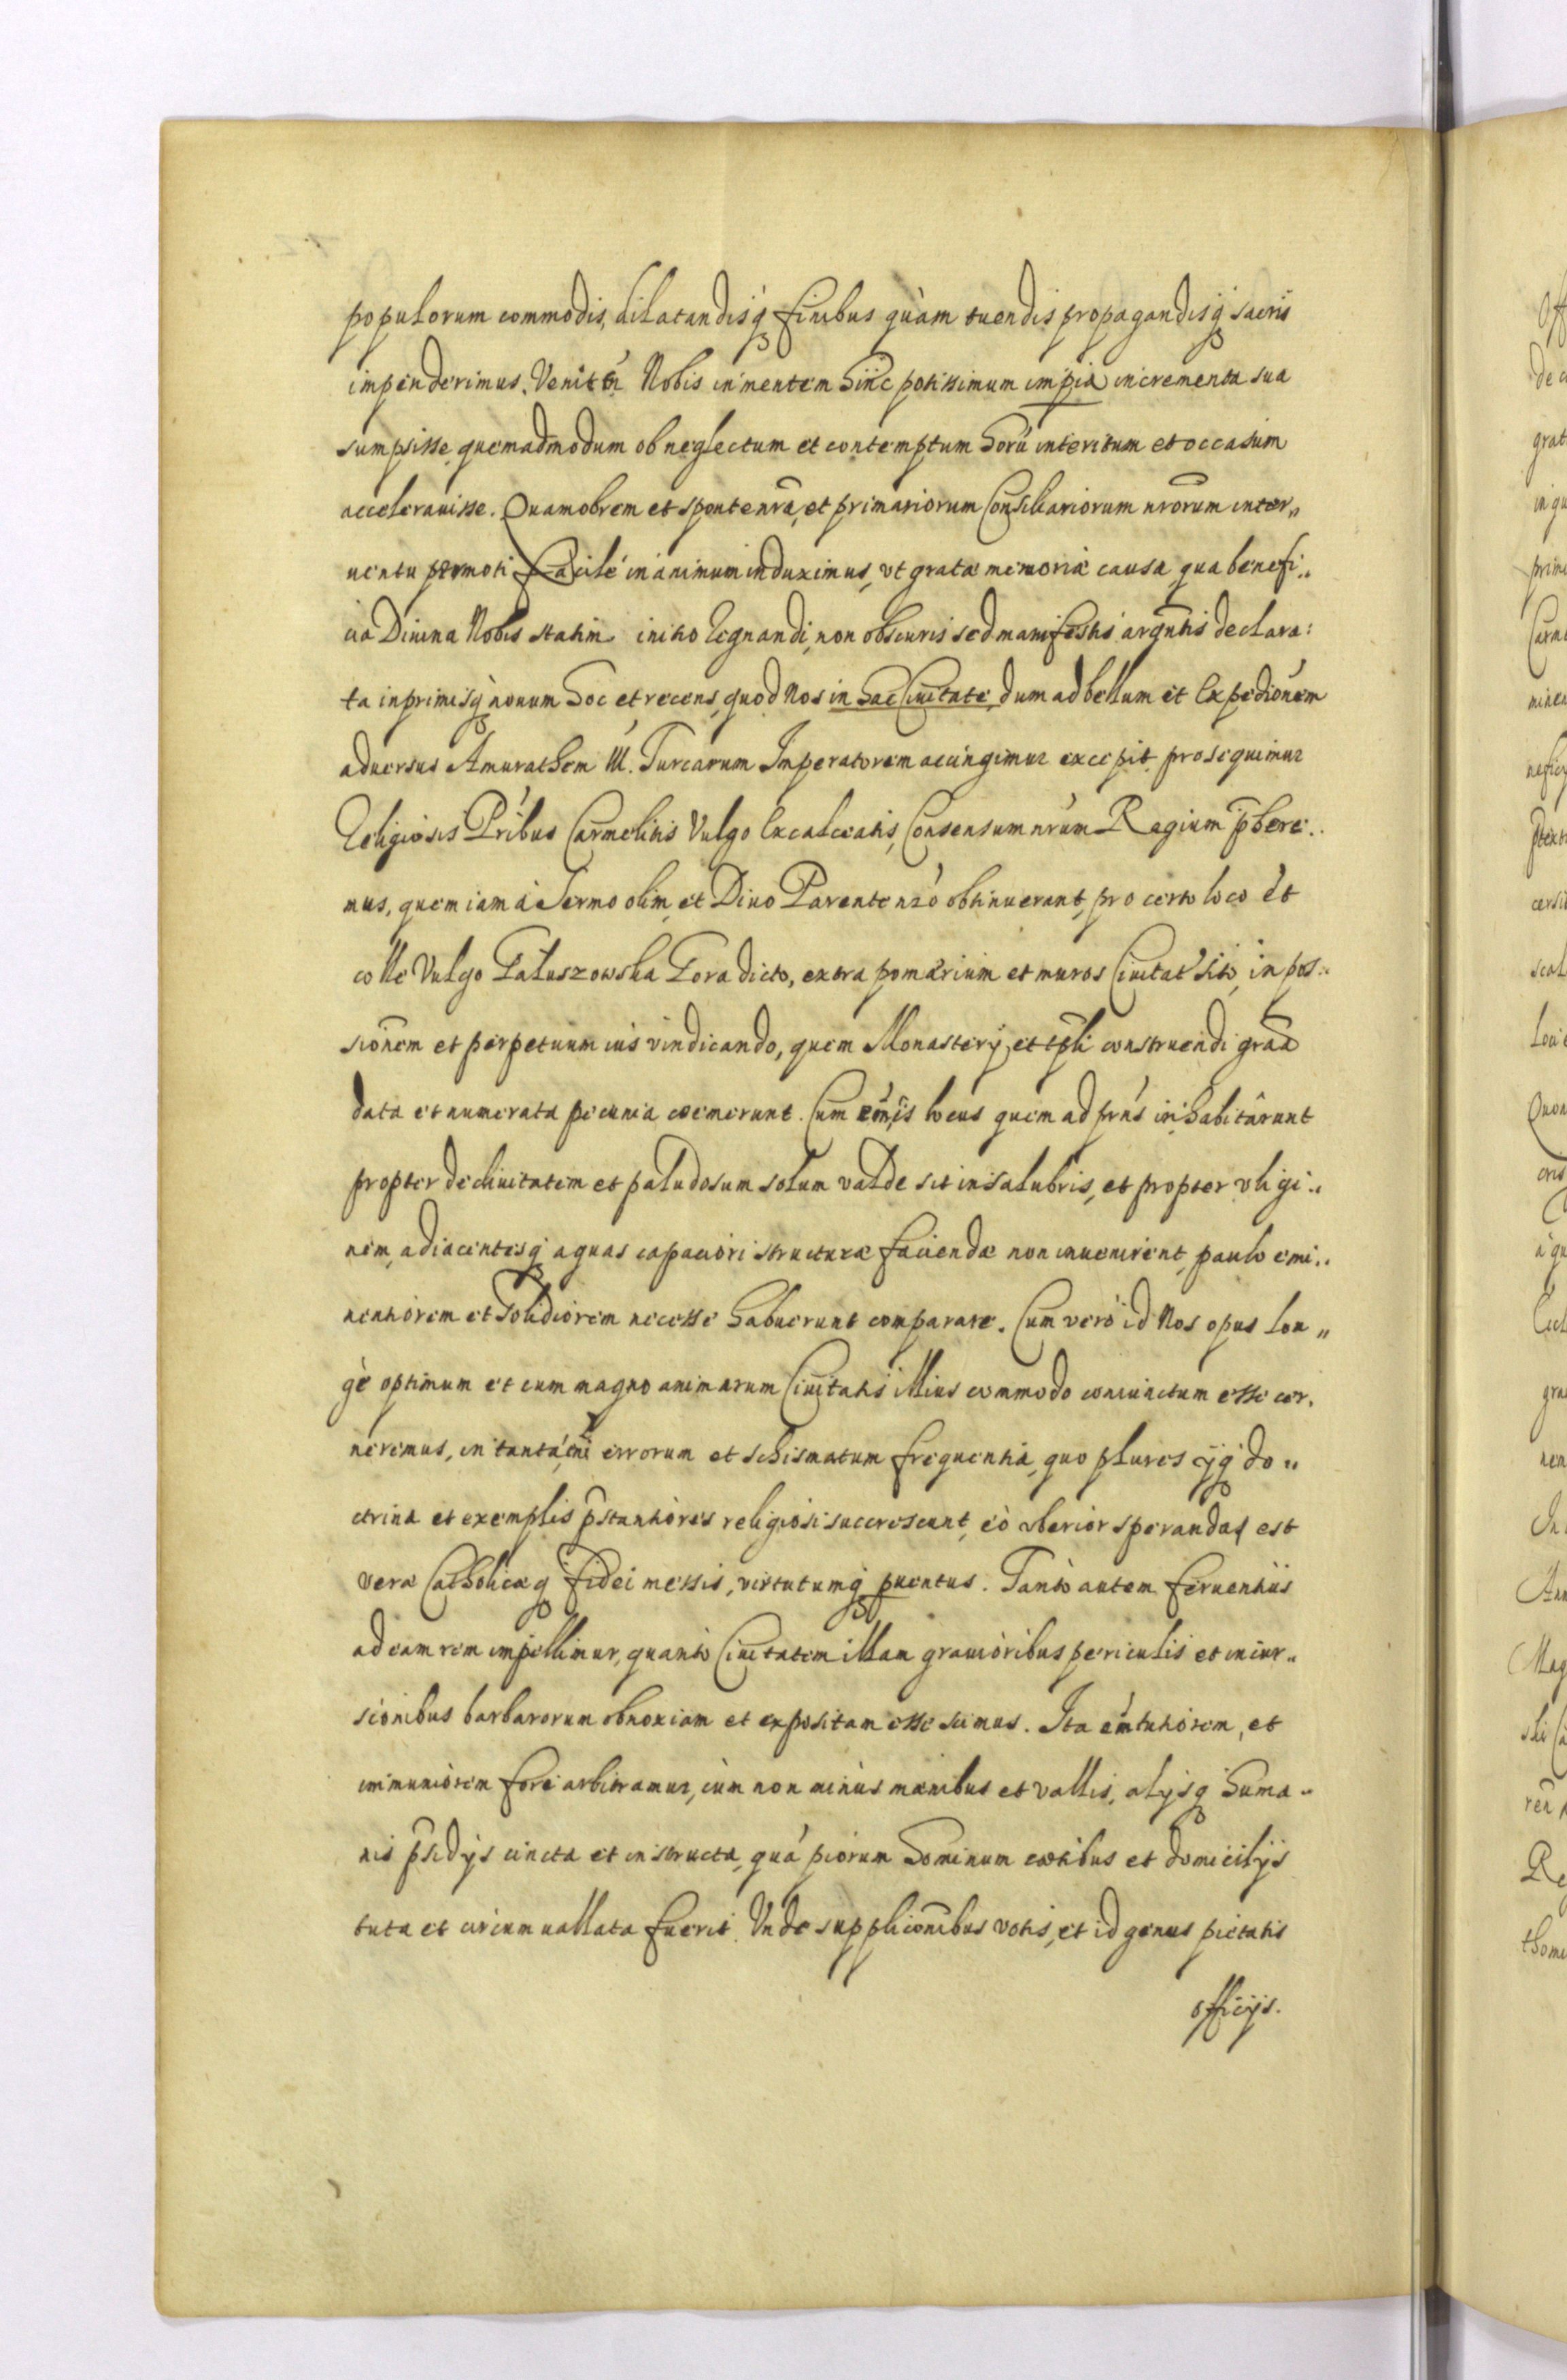 populorum commodis, dilatandisq́ finibus quàm tuendis propagandisq́ sacris
impenderimus. Venit tn̄ Nobis in mentem hinc potissimum impia incrementa sua
sumpsisse, quemadmodum ob neglectum et contemptum horū interitum et occasum
accelerauisse. Quamobrem et sponte nrā, et primariorum Consiliariorum nrōrum inter„
uentu permoti facilè in animum induximus, vt gratæ memoriæ causa, qua benefi„
cia Diuina Nobis statim initio Regnandi, non obscuris sed manifestis argūtis declara:
ta inprimisq́ nouum hoc et recens, quod Nos in hac Ciuitate, dum ad bellum et Expediōnem
aduersus Amurathem IV. Turcarum Imperatorem accingimur excepit, prosequimur
Religiosis Pribus Carmelitis Vulgo Excalceatis, Consensum nrūm Regium p̄bere„
mus, quem iam à Sermo olim, et Diuo Parente nr̄o obtinuerant, pro certo loco et
colle Vulgo Gałuszowska Gora dicto, extra pomærium et muros Ciuitat̄ sito, in pos„
siōnem et perpetuum ius vindicando, quem Monasterij et tp̄li construendi grāa
data et numerata pecunia coemerunt. Cum eōm is locus quem ad prn̄s inhabitârunt
propter decliuitatem et paludosum solum valde sit insalubris, et propter vligi„
nem, adiacentesq́ aquas capaciori structuræ faciendæ non inuenirent, paulo emi„
nentiorem et solidiorem necesse habuerunt comparare. Cum verò id Nos opus lon„
gè optimum et cum magno animarum Ciuitatis illius commodo coniunctum esse cer„
neremus, in tantá, errorum et schismatum frequentia, quo plures ijq́ do„
ctrina et exemplis p̄stantiores religiosi succrescunt, eò vberior speranda est
veræ Catholicæq́ fidei messis, virtutumq́ puentus. Tantò autem feruentiùs
ad eam rem impellimur, quantò Ciuitatem illam grauioribus periculis et incur„
sionibus barbarorum obnoxiam et expositam esse scimus. Ita em̄ tutiorem, et
immuniorem fore arbitramur, cùm non minùs mænibus et vallis, alijsq́ huma„
nis p̄sidijs cincta et instructa, quà piorum hominum cætibus et domicilijs
tuta et circumuallata fuerit. Vnde suppliciōnibus votis, et id genus pietatis
officijs.